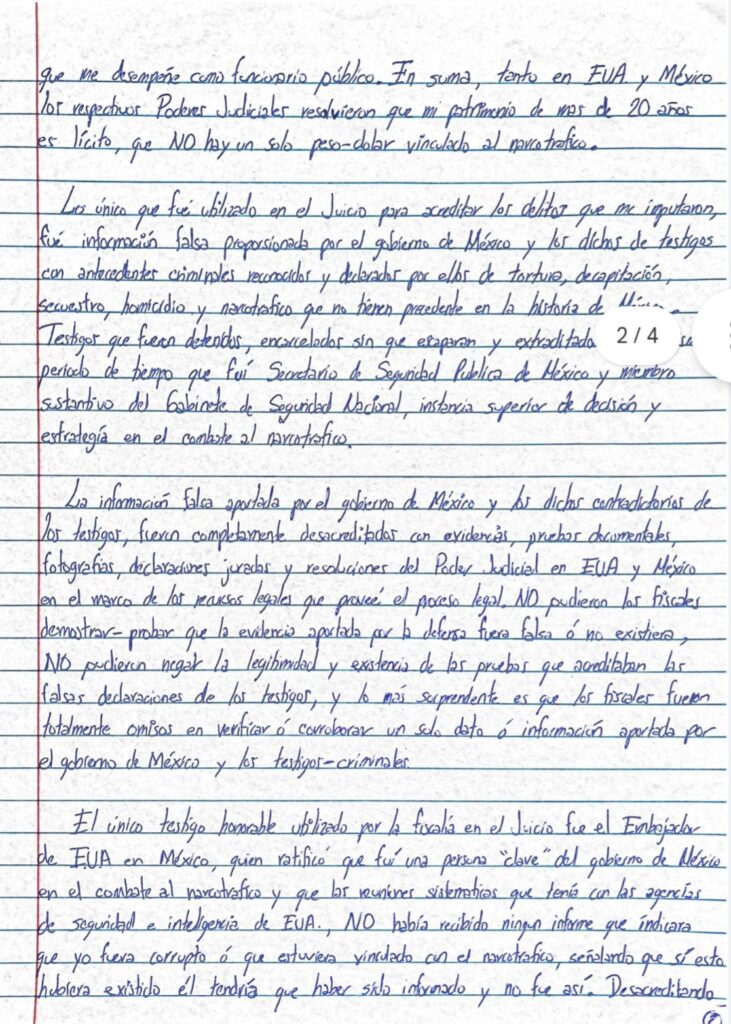 que me desempeñe como funcionario público. En suma, tanto en EUA y México
los respectivos Poderes Judiciales resolvieron que mi patrimonio de mas de 20 años
es lícito, que NO hay un solo peso-dolar vinculado al narcotrafico.
Lo único que fué utilizado en el Juicio para acreditar los delitos que me imputaron,
fué información falsa proporcionada por el gobierno de México y los dichos de testigos
con antecedentes criminales reconocidos y declarados por ellos de tortura, decapitación,
secuestro, homicidio y narcotrafico que no tienen precedente en la historia de
Testigos que fueron detenidos, encarcelados sin que escaparan y
2/4
periodo de tiempo que fuí Secretario de Seguridad Publica de México y miembro
sustantivo del Gabinete de Seguridad Nacional, instancia superior de decisión y
estrategía en el combate al narcotrafico.
La información falsa aportada por el gobierno de México y los dichos contradictorios de
los testigos, fueron completamente desacreditados con evidencias, pruebas documentales,
fotografias, declaraciones juradas y resoluciones del Poder Judicial en EUA y México
en el marco de los recursos legales que proveé el proceso legal. NO pudieron los fiscales
demostrar-probar que la evidencia aportada por la defensa fuera falsa ó no existiera,
NO pudieron negar la legitimidad y existencia de las pruebas que acreditaban las
falsas declaraciones de los testigos, y lo mas sorprendente es que los fiscales fueron
totalmente omisos en verificar ó corroborar un solo dato ó información aportada por
el gobierno de México y los testigos-criminales
El único testigo honorable utilizado por la fiscalía en el Juicio fue el Embajador
de EUA en México, quien ratificó que fuí una persona "clave" del gobierno de México
en el combate al narcotrafico y que las reuniones sistematicas que tenía con las agencias
de seguridad e inteligencia de EUA., NO había recibido ningun informe que índicara
que yo fuera corrupto ó que estuviera vinculado con el narcotrafico, señalando que sí esto
hubiera existido él tendría que haber sido informado y no fue así. Desacreditando